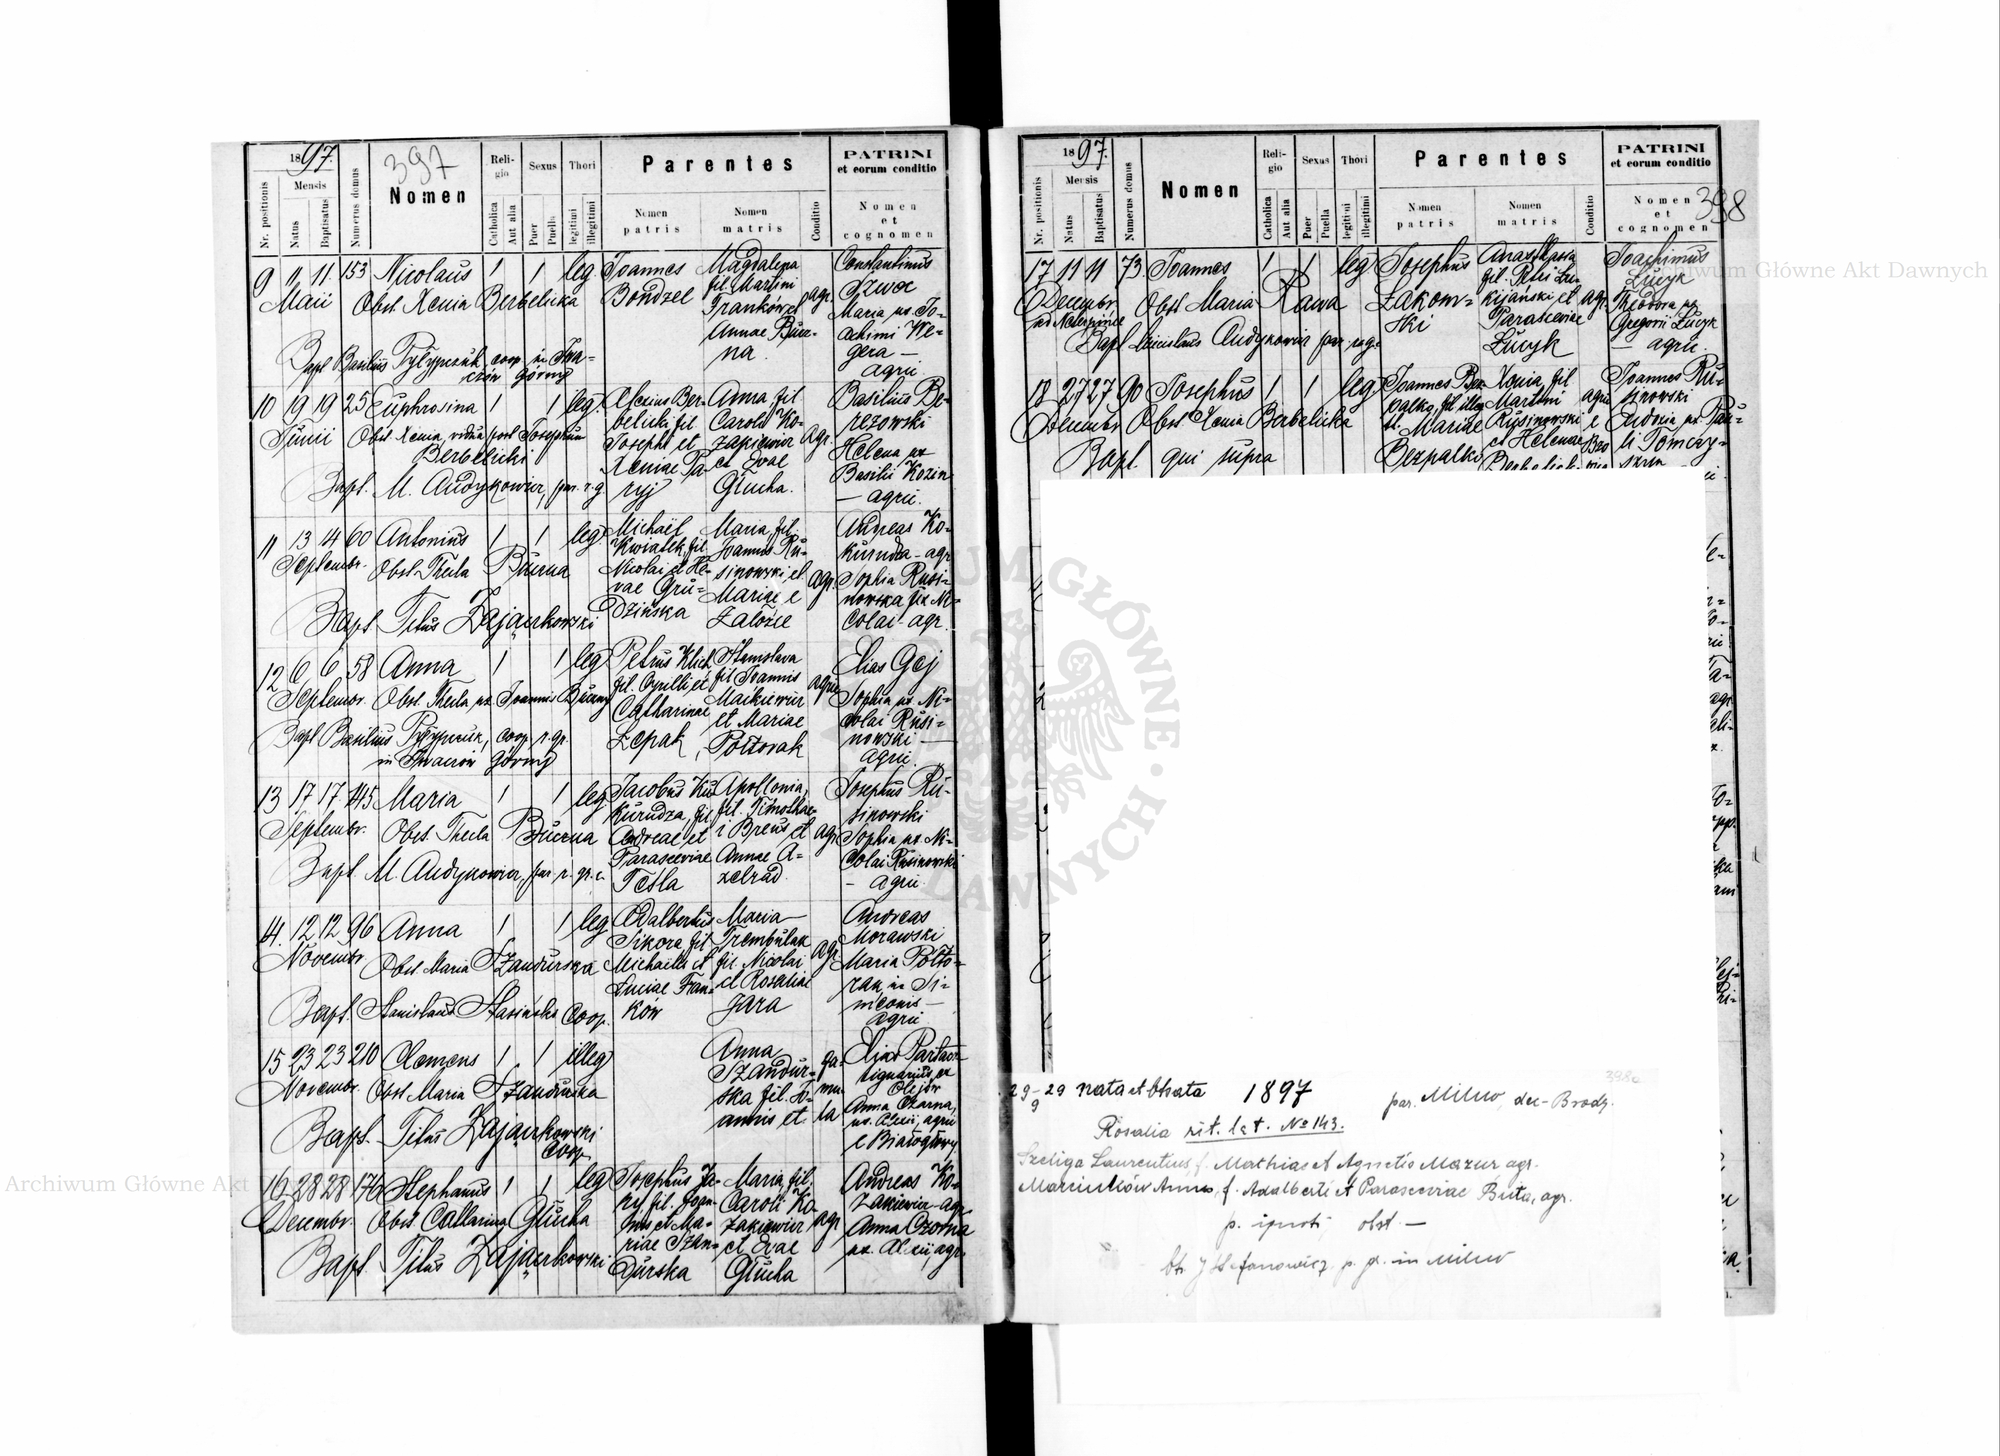 1897.
397
Nr. positionis
Mensis
Natus
Baptisatus
Numerus domus
Nomen
Religio
Catholica
Aut alia
Sexus
Puer
Puella
Thori
legitimi
illegitimi
Parentes
Nomen patris
Nomen matris
Conditio
PATRINI
et eorum conditio
Nomen
et
cognomen
9 11 11. 153 Nicolaus 1 1 leg Joannes Bondzel
Magdalena fil. Martini Franków et Annae
agr.
Constantinus
Maria ux. Joachimi Wegera — agric.
Maii Obst. Xenia Berbelicka
Bapt. Basilius coop. in Górny
10 19 19 25 Euphrosina 1 1 leg. Alexius Berbelicki, fil. Josephi et Xeniae
Anna, fil. Caroli Kozakiewicz et Evae Głucha.
agr.
Basilius Berezowski
Helena ux Basilii Kozin — agric.
Junii Obst. Xenia, vidua post Josephum Berbelicki
Bapt. M. Audykowicz, par. r. g.
11 13 14 60 Antonius 1 1 leg Michaël Kwiatek, fil. Nicolai et Evae Grudzińska
Maria, fil. Joannis Rusinowski, et Mariae e Załoźce
agr.
Andreas Kokurudza - agr
Sophia Rusinowska ux Nicolai agr.
Septembr. Obst. Thecla Burna
Bapt. Titus Zajączkowski
12 6 6 58 Anna 1 1 leg Petrus Klich fil. Cyrilli et Catharinae Łepak
Stanislava fil. Joannis Maikiewicz et Mariae Półtorak
agric
Elias Gej
Sophia ux. Nicolai Rusinowski — agric.
Septembr. Obst. Thecla, ux. Joannis Burny
Bapt. Basilius coop. r. gr.
in Górny
13 17 17 145 Maria 1 1 leg Jacobus Kukurudza, fil. Andreae et Parasceviae Tesla
Apollonia, fil. Timothaei Breus et Annae Azelrad.
agr.
Josephus Rusinowski
Sophia ux. Nicolai Rusinowski — agric.
Septembr. Obst. Thecla Burna
Bapt. M. Audykowicz, par. r. gr. c.
14. 12 12 96 Anna 1 1 leg Adalbertus Sikora fil Michaelis et Luciae Franków
Maria Trembulak fil. Nicolai et Rosaliae Jara
agr
Andreas Morawski
Maria Półtorak, ux Simeonis — agric
Novembr. Obst. Maria Szandurska
Bapt. Stanislaus Stasiński Coop.
15 23 23 210 Clemens 1 1 illeg
Anna Szandurska fil. Joannis et.
famula
Elias ex Olejów
Anna Czarna, ux. Alexii, agric e Białogłowy
Novembr. Obst. Maria Szandurska
Bapt. Titus Zajączkowski Coop.
16 28 28 176 Stephanus 1 1 leg Josephus Jary fil. Joannis et Mariae Szandurska
Maria, fil. Caroli Kozakiewicz et Evae Głucha
agr
Andreas Kozakiewicz - agr.
Anna Czarna ux. Alexii, agr.
Decembr. Obst. Catharina Głucha
Bapt. Titus Zajączkowski
1897.
398
Nr. positionis
Mensis
Natus
Baptisatus
Numerus domus
Nomen
Religio
Catholica
Aut alia
Sexus
Puer
Puella
Thori
legitimi
illegitimi
Parentes
Nomen patris
Nomen matris
Conditio
PATRINI
et eorum conditio
Nomen
et
cognomen
17 11 11 73. Joannes 1 1 leg Josephus Łakomski
Anastasia fil. Petri et Parasceviae Łucyk
agr.
Joachimus Łucyk
Theodora ux. Gregorii Łucyk — agric.
Decembr. Obst. Maria Rawa
Bapt. Audykowicz par r. g.
18 27 27 90 Josephus 1 1 leg Joannes Bezpalko, fil. illeg. Mariae Bezpalko
Xenia, fil Martini Rusinowski et Helenae
Joannes Rusinowski
Eudoxia ux. Pauli
Decembr Obst. Xenia Berbelicka
Bapt. qui supra
398a
29-29 nata et btsata 1897 par. Milno, dec-Brody.
9
Rosalia rit. lat. No 143.
Szeliga Laurentius, f. Mathias et Agnetis Mazur agr.
Marcinków Anna, f. Adalberti et Parasceviae Buta, agr.
p. ignoti, obst. —
bts. J. Stefanowicz p. p. in Milno
Archiwum Główne Akt Dawnych
Archiwum Główne Akt Dawnych
ARCHIWUM GŁÓWNE · AKT DAWNYCH ·